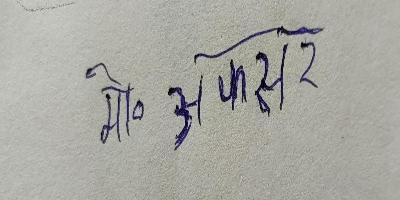 मो० अफसर